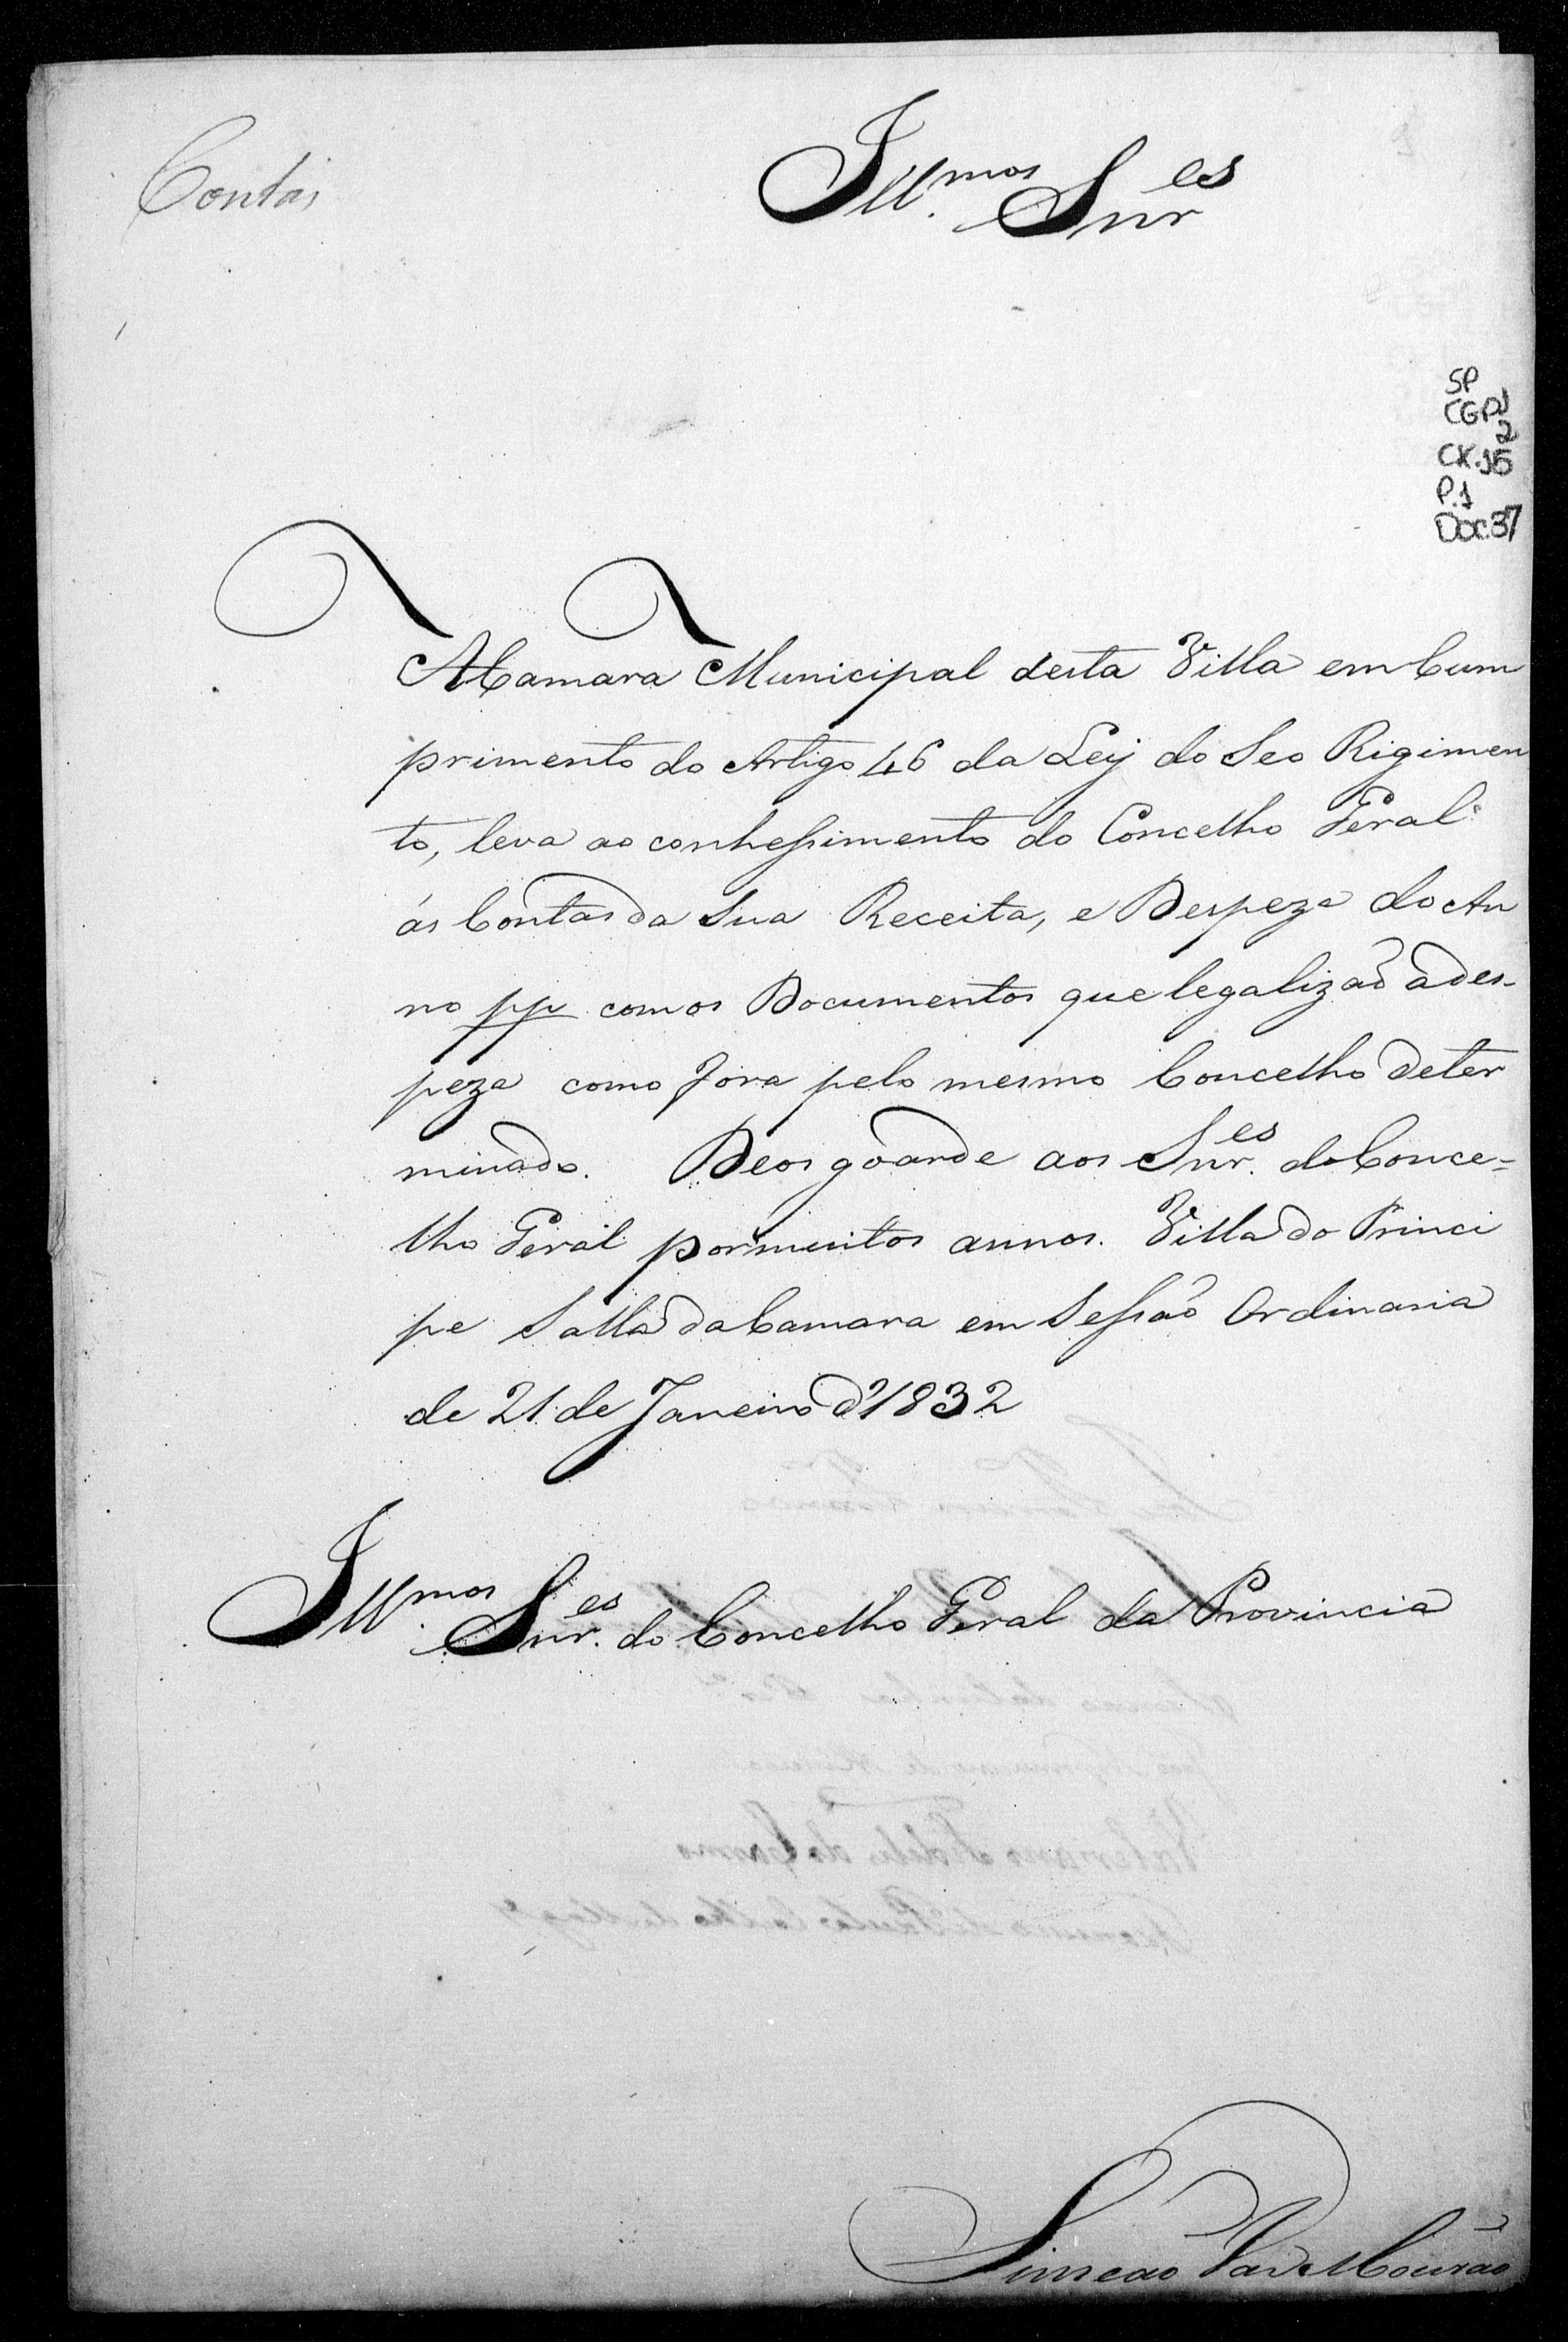 Contas
Ill.mos Snr.es
SP
CGP1
2
CX.15
P.1
Doc.37
A Camara Municipal desta Villa em Cum
primento do Artigo 46 da Ley do Seo Rigimen
to, leva ao conhessimento do Concelho Geral
ás Contas da Sua Receita, e Despeza do An
no pp com os Documentos que legalizaõ a des-
peza como fora pelo mesmo Concelho deter
minado. Deos goarde aos Snr.es do Conce=
lho Geral por muitos annos. Villa do Princi
pe Salla da Camara em Sessaõ Ordinaria
de 21 de Janeiro d'1832
Ill.mos Snr.es do Concelho Geral da Provincia
Simeaõ Mouraõ